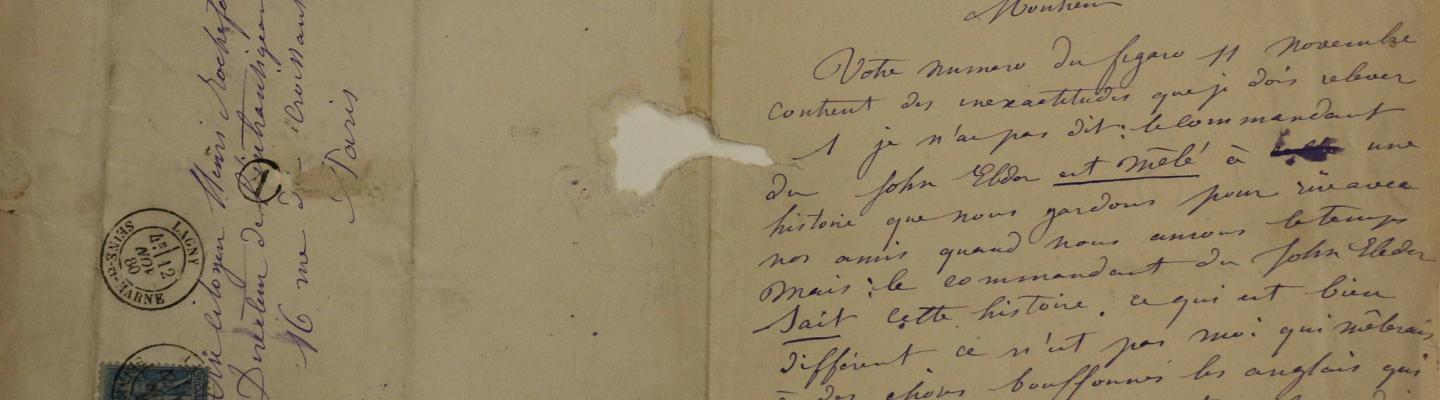 Au citoyen Henri Rochefo
Directeur de l'intransigean
16 rue du Croissant
Paris
LAGNY
4E 12 NOV 80
SEINE-ET-MARNE
Monsieur
Votre numero du figaro 11 novembre
contient des inexactitudes que je dois relever
1 je n'ai pas dit: le commandant
du John Elder est mêlé à une
histoire que nous gardons pour rire avec
nos amis quand nous aurons le temps
mais: le commandant du John Elder
sait cette histoire. ce qui est bien
différent ce n'est pas moi qui mêlerais
à des choses bouffonnes les anglais qui